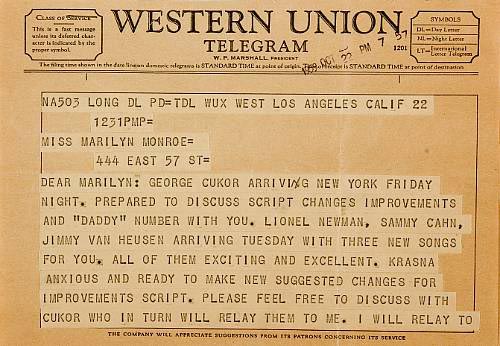 CLASS OF SERVICE
This is a fast message
unless its deferred char-
acter is indicated by the
proper symbol.
WESTERN UNION
TELEGRAM
W. P. MARSHALL, PRESIDENT
1201
SYMBOLS
DL=Day Letter
NL=Night Letter
LT=International Letter Telegram
OCT 22 PM 7 57
The filing time shown in the date line on domestic telegrams is STANDARD TIME at point of origin. Time of receipt is STANDARD TIME at point of destination
NA503 LONG DL PD=TDL WUX WEST LOS ANGELES CALIF 22
1231PMP=
MISS MARILYN MONROE=
444 EAST 57 ST=
DEAR MARILYN: GEORGE CUKOR ARRIVING NEW YORK FRIDAY
NIGHT. PREPARED TO DISCUSS SCRIPT CHANGES IMPROVEMENTS
AND "DADDY" NUMBER WITH YOU. LIONEL NEWMAN, SAMMY CAHN,
JIMMY VAN HEUSEN ARRIVING TUESDAY WITH THREE NEW SONGS
FOR YOU. ALL OF THEM EXCITING AND EXCELLENT. KRASNA
ANXIOUS AND READY TO MAKE NEW SUGGESTED CHANGES FOR
IMPROVEMENTS SCRIPT. PLEASE FEEL FREE TO DISCUSS WITH
CUKOR WHO IN TURN WILL RELAY THEM TO ME. I WILL RELAY TO
THE COMPANY WILL APPRECIATE SUGGESTIONS FROM ITS PATRONS CONCERNING ITS SERVICE